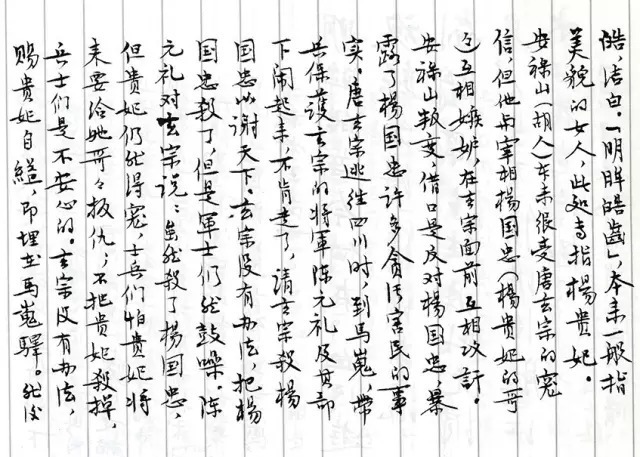 皓,洁白。「明眸皓齒」,本来一般指
美貌的女人,此处专指楊貴妃。
安祿山(胡人)本来很受唐玄宗的宠
信,但他与宰相楊国忠(楊貴妃的哥
互相嫉妒,在玄宗面前互相攻訐。
安祿山叛变,借口是反对楊国忠,暴
露了楊国忠许多貪污害民的事
实。唐玄宗逃往四川时,到馬嵬,带
兵保護玄宗的将軍陈元礼及其部
下闹起来,不肯走了,請玄宗殺楊
国忠以谢天下。玄宗没有办法,把楊
国忠殺了,但是軍士们然鼓噪。陈
元礼对玄宗说:虽然殺了楊国忠,
但貴妃仍然得宠,士兵们怕貴妃将
来要给她哥々报仇,不把貴妃殺掉,
兵士们是不安心的。玄宗没有办法,
赐貴妃自縊,即埋在馬嵬驛。然後